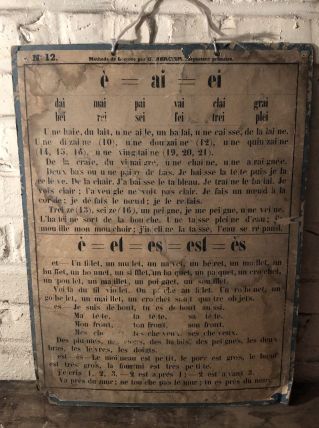 N° 12.
Méthode de Lecture par
è — ai — ei
dai mai pai vai chai grai
bei rei sei fei trei plei
Une baie, du lait, une aile, un balai, une caisse, de la laine.
Une dizaine (10), une douzaine (12), une quinzaine
(14, 15, 16), une vingtaine (19, 20, 21).
De la craie, du vinaigre, une chaîne, une araignée.
Deux bas ou une paire de bas. Je baisse la tête puis je la
relève. De la chair. J'ai baissé le tableau. Je traîne le balai. Je
vois clair; l'aveugle ne voit pas clair. Je fais un nœud à la
corde; je défais le nœud; je le refais.
Treize (13), seize (16), un peigne, je me peigne, une veine.
L'haleine sort de la bouche. Une tasse pleine d'eau;
mouille mon mouchoir; j'incline la tasse, l'eau se répand.
è — et — es — est — ès
et — Un filet, un mulet, un navet, un béret, un mollet, un
buffet, un bonnet, un sifflet, un baquet, un paquet, un crochet,
un poulet, un maillet, un poignet, un soufflet.
Voilà du Un robinet, un
gobelet, un maillet, un crochet sont
es — Je suis debout, tu es debout aussi.
Ma tête, ta tête, sa tête.
Mon front, ton front, son front.
Mes cheveux, tes cheveux, ses cheveux.
Des plumes, des des bas, des peignes, les deux
bras, les lèvres, les doigts.
est — ès — Le moineau est petit, le porc est gros, le bœuf
est très gros, la fourmi est très petite.
J'écris 1, 2, 3. — 2 est après 1; — 2 est avant 3.
Va près du mur; ne touche pas le mur; tu es près du mur.